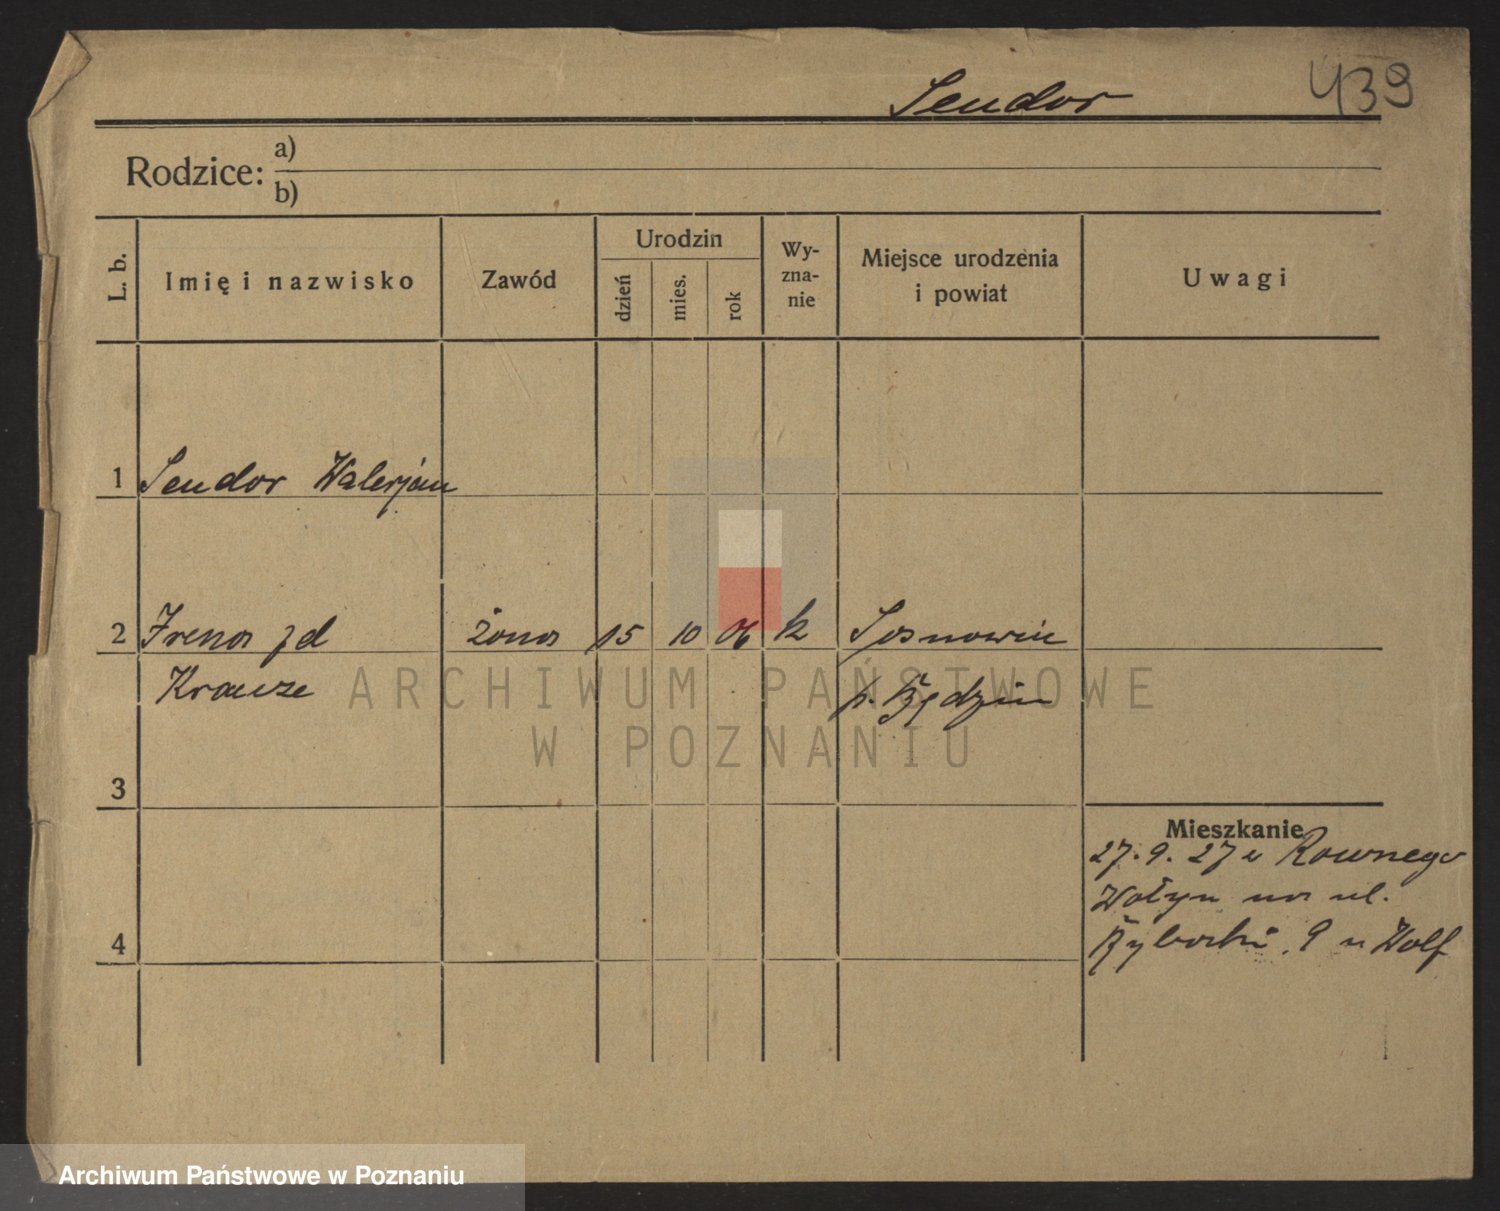 439
Sendor
Rodzice: a)
b)
L. b.
Imię i nazwisko
Zawód
Urodzin
dzień
mies.
rok
Wy-
zna-
nie
Miejsce urodzenia
i powiat
Uwagi
1 Sendor Walerjan
2 Irena zd żona 15 10 06 k Sosnowiec
Krauze p. Będzin
3
Mieszkanie
27.9.27 z Rownego
Wołyn na ul.
4
Rybaki 9 u Wolf
ARCHIWUM PAŃSTWOWE
W POZNANIU
Archiwum Państwowe w Poznaniu